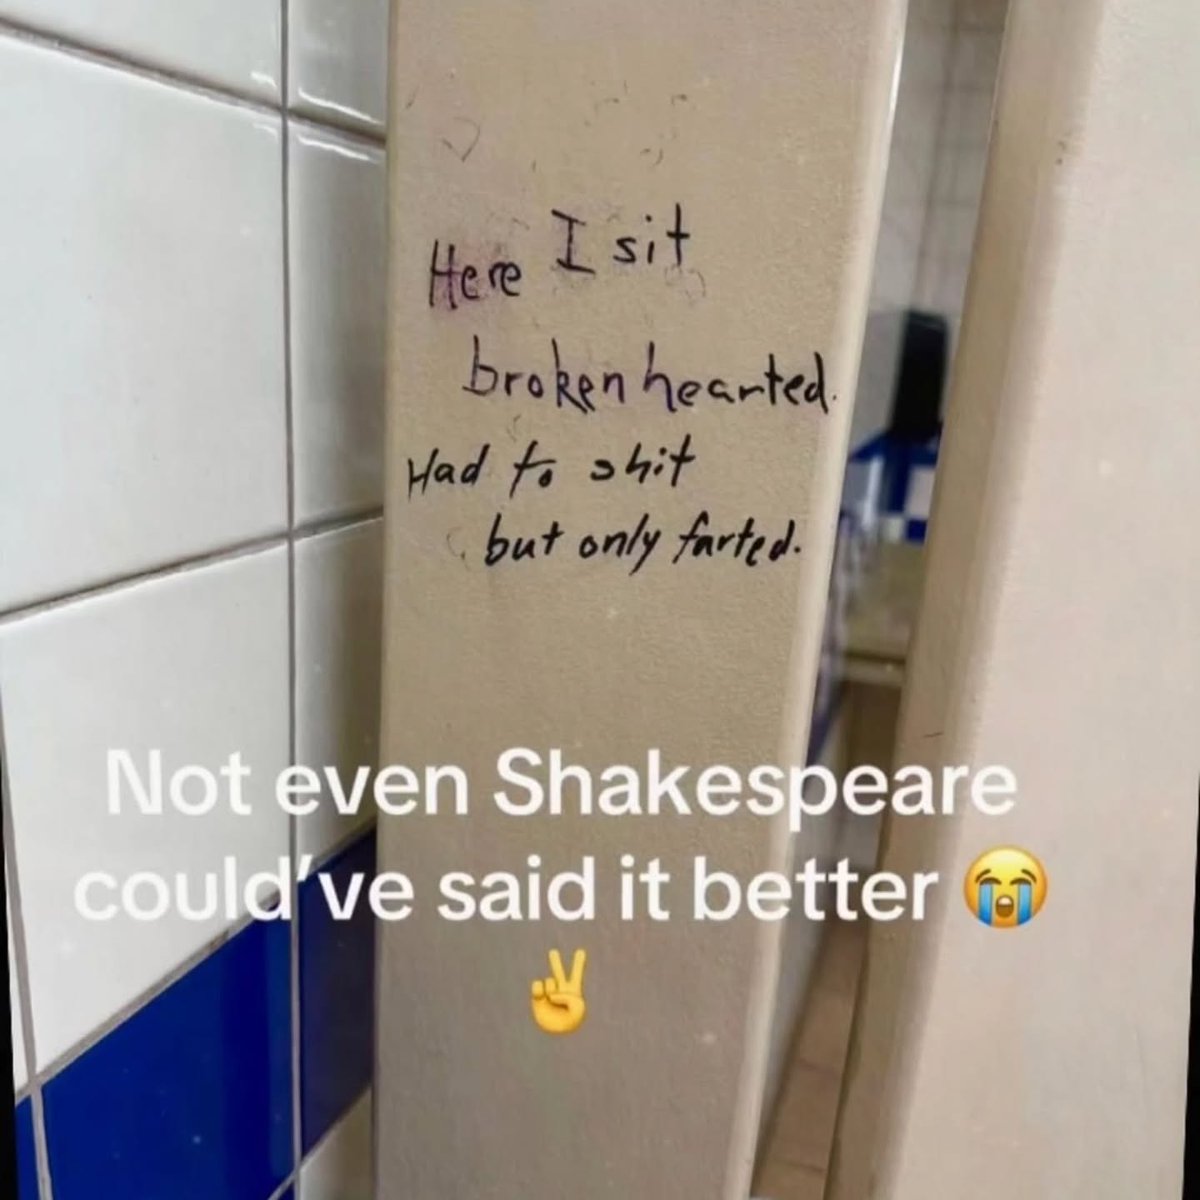 Here I sit
broken hearted.
Had to shit
but only farted.
Not even Shakespeare
could've said it better 😭
✌️